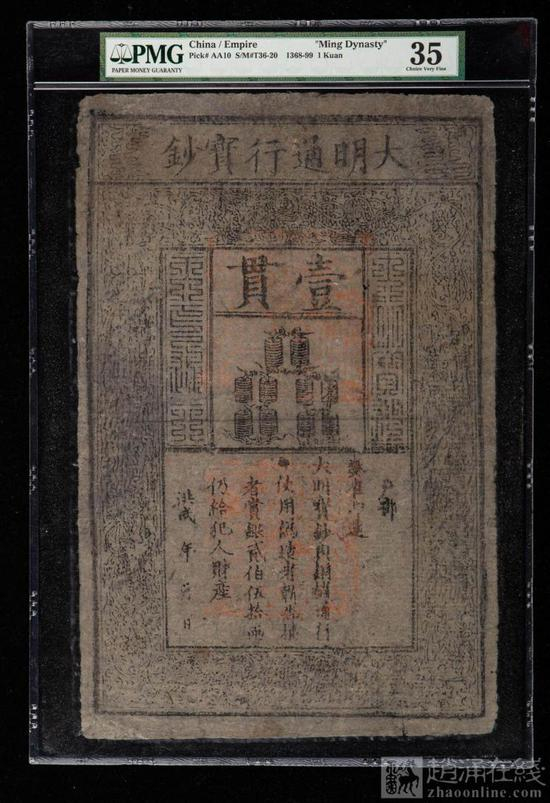 PMG
PAPER MONEY GUARANTY
China / Empire "Ming Dynasty"
Pick# AA10 S/M#T36-20 1368-99 1 Kuan
35
Choice Very Fine
大明通行寳鈔
壹貫
户部
奏准印造
大明寳鈔與銅錢通行
使用偽造者斬告捕
者賞銀貳伯伍拾兩
仍給犯人財産
洪武 年 月 日
趙涌在綫
zhaoonline.com